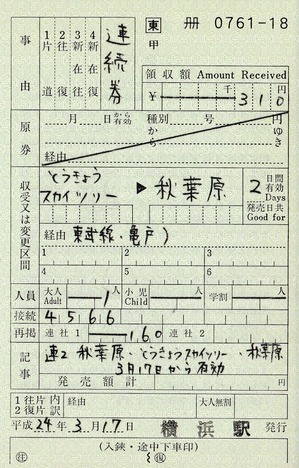 東 冊 0761-18
甲
事由
1片道
2往復
3新在往
4新在復
連続券
領収額 Amount Received
¥ 千 310 円
原券
月 日から有効 種別 号 円
から ゆき
経由
収受又は変更区間
とうきょうスカイツリー ▶ 秋葉原
2 日間有効 Days
発売日共 Good for
経由 東武線・亀戸)
1 2 3
4 5 6
人員 大人 Adult 1人 小児 Child 学割
接続 4 5 6 6
再掲 連社1 160 連社2
記事
連2 秋葉原・とうきょうスカイツリー・秋葉原
3月17日から有効
発売額計
1片道分内
2復片訳
経由 大人無割
平成24年3月17日 横浜駅 発行
(入鋏・途中下車印)